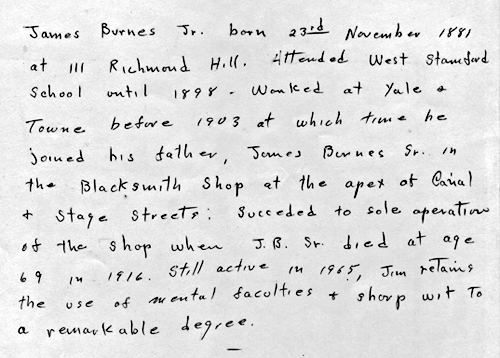 James Burnes Jr. born 23rd November 1881
at 111 Richmond Hill. Attended West Stamford
School until 1898 - Worked at Yale &
Towne before 1903 at which time he
joined his father, James Burnes Sr. in
the Blacksmith Shop at the apex of Canal
+ Stage Streets; Succeded to sole operation
of the shop when J.B. Sr. died at age
69 in 1916. Still active in 1965, Jim retains
the use of mental faculties + sharp wit to
a remarkable degree.